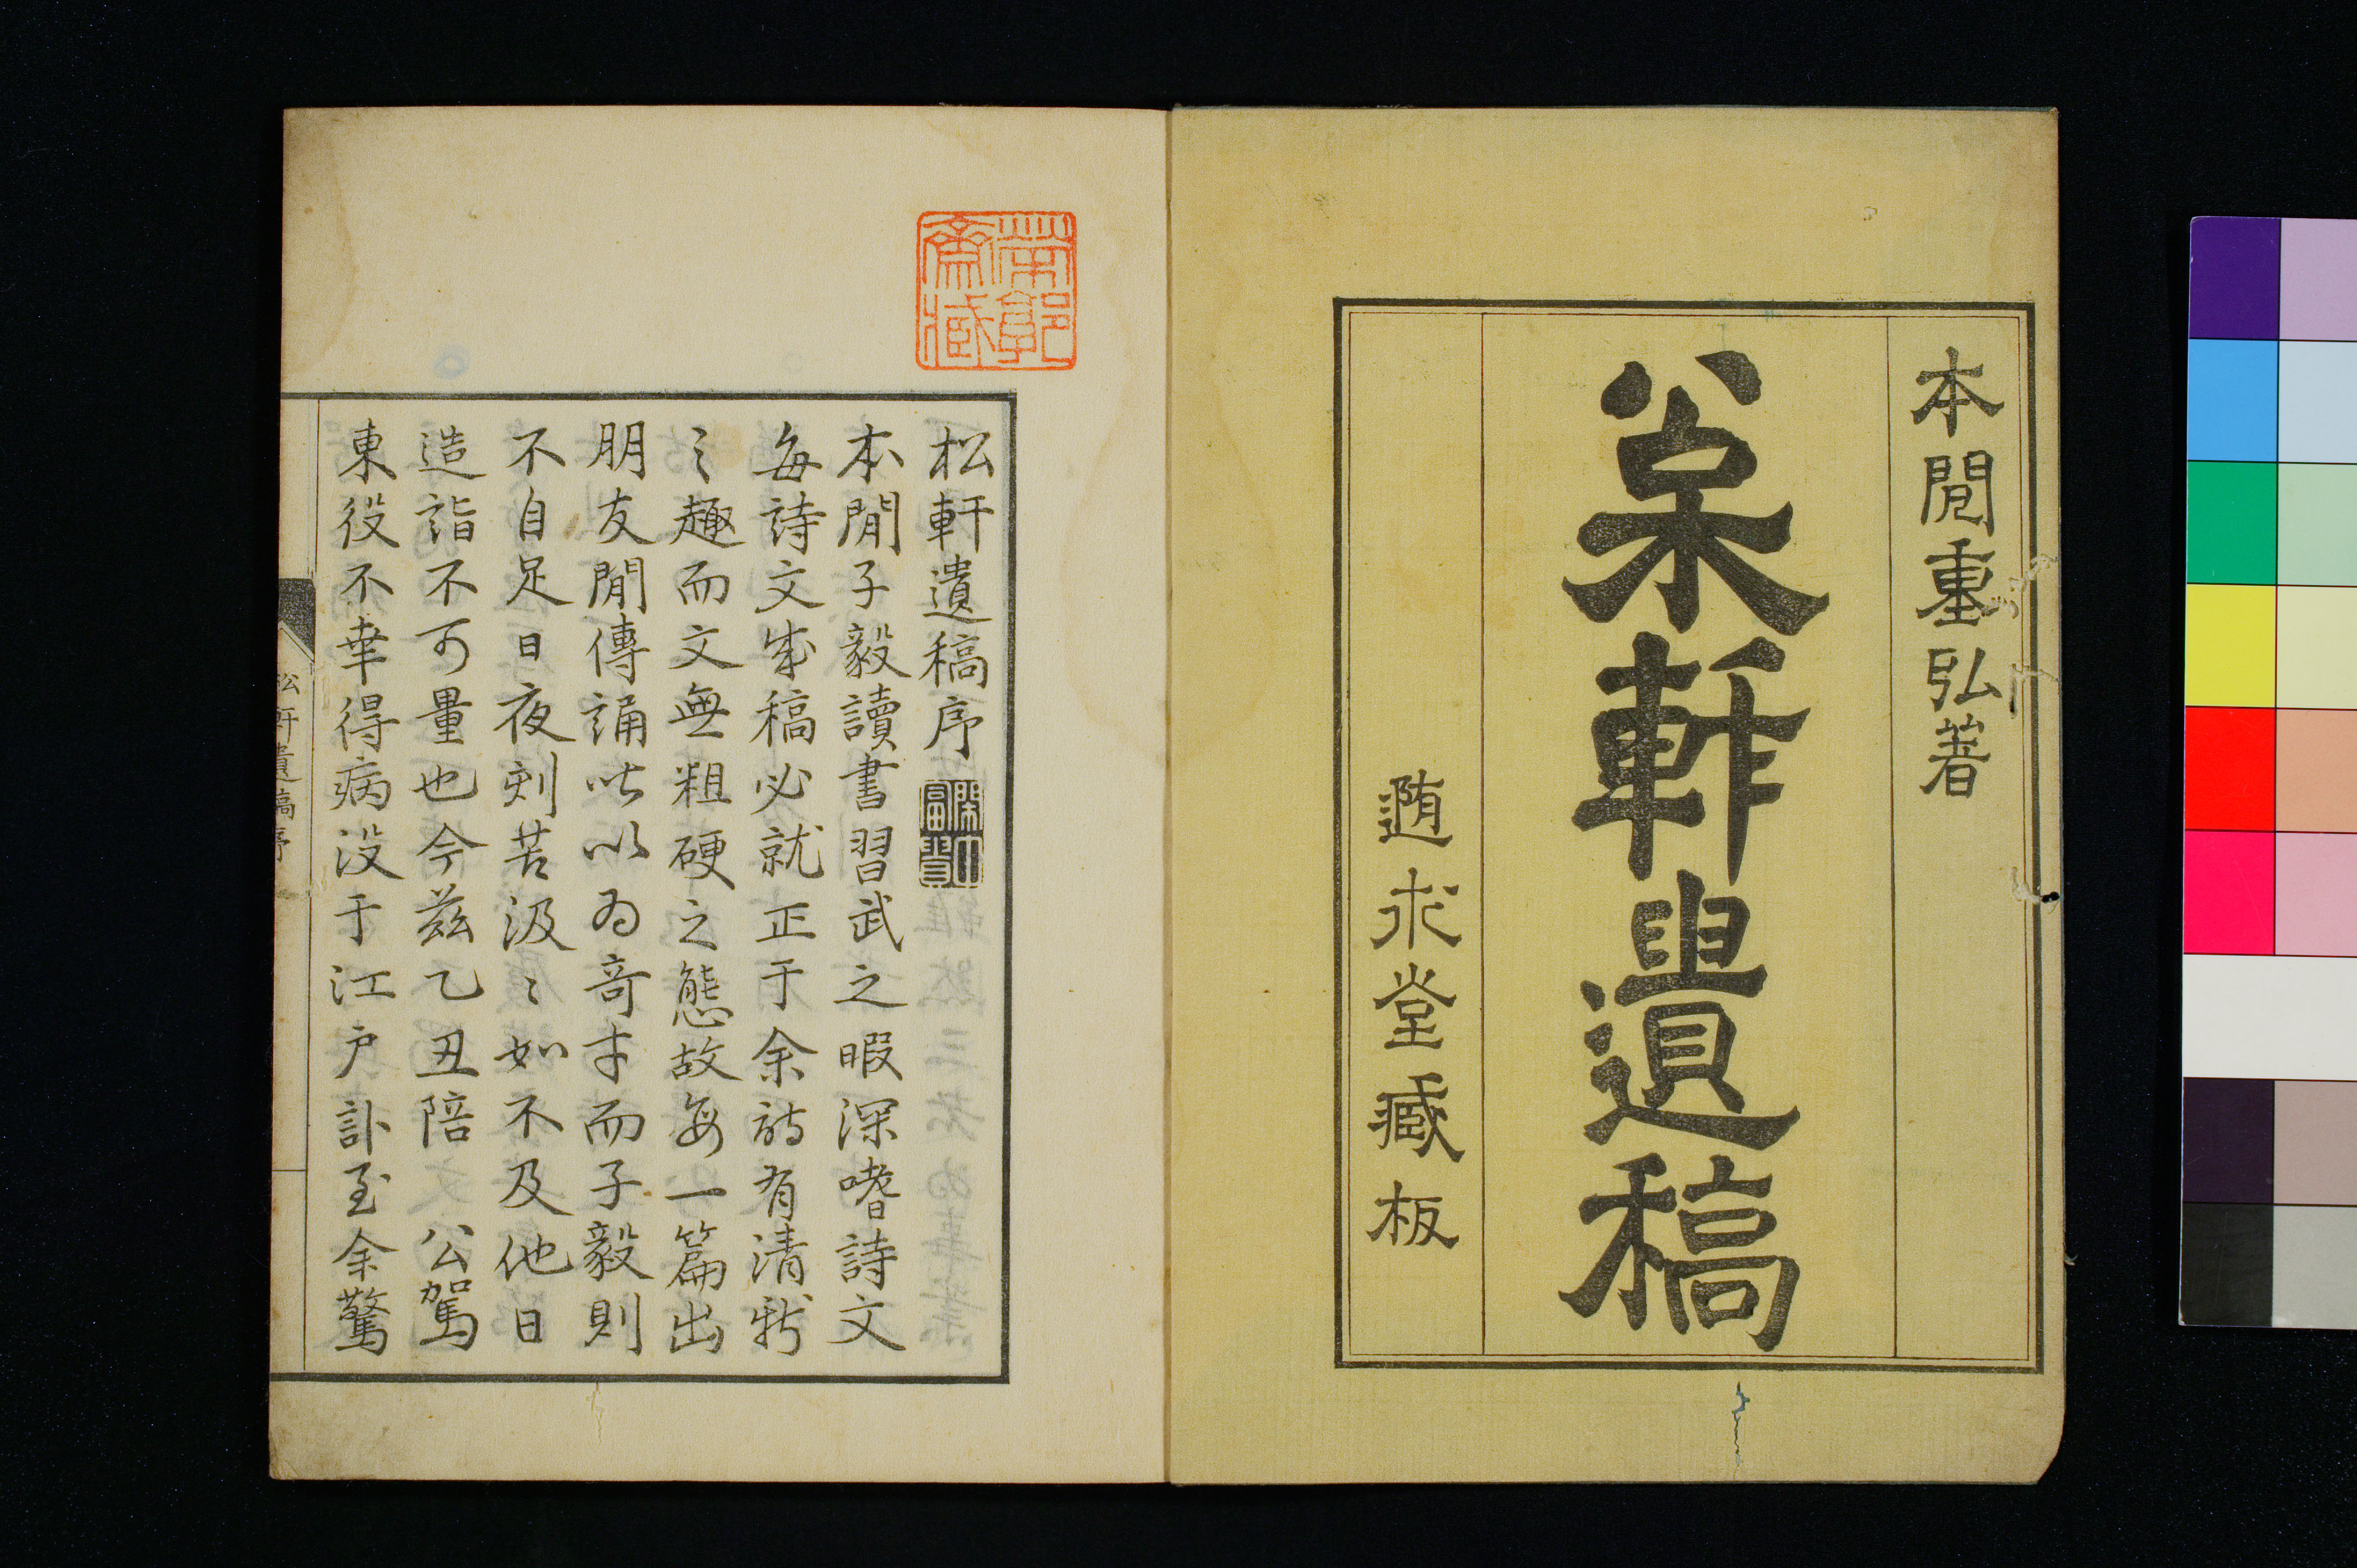 本閒重弘著
枀軒遺稿
遀求堂藏板
帶郭
齋藏
松軒遺稿序
本閒子毅讀書習武之暇深嗜詩文
每詩文成稿必就正于余詩有清新
之趣而文無粗硬之態故每一篇出
朋友閒傳誦皆以為奇才而子毅則
不自足日夜刻苦汲〻如不及他日
造詣不可量也今茲乙丑陪　公駕
東役不幸得病没于江戶訃至余驚
松軒遺稿序